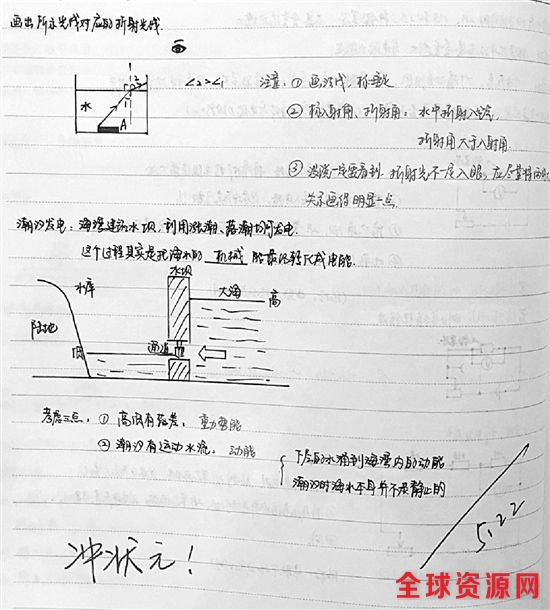 画出所示光线对应的折射光线.
∠2>∠1
注意: ① 画法线, 标垂足
② 标入射角、折射角: 水中折射入空气,
折射角大于入射角
③ 没说一定要看到, 折射光不一定入眼,
关系画得明显一点.
水
A
潮汐发电: 海湾建筑水坝, 利用涨潮、落潮均可发电
这个过程其实是把海水的 机械 能最终转化成电能.
水库
水坝
大海
高
陆地
通道
考虑三点: ① 高低有落差, 重力势能
② 潮汐有运动水流, 动能
下层的水涌到海湾内的动能
潮汐时海水本身并不是静止的
5.22
冲状元!
全球资源网